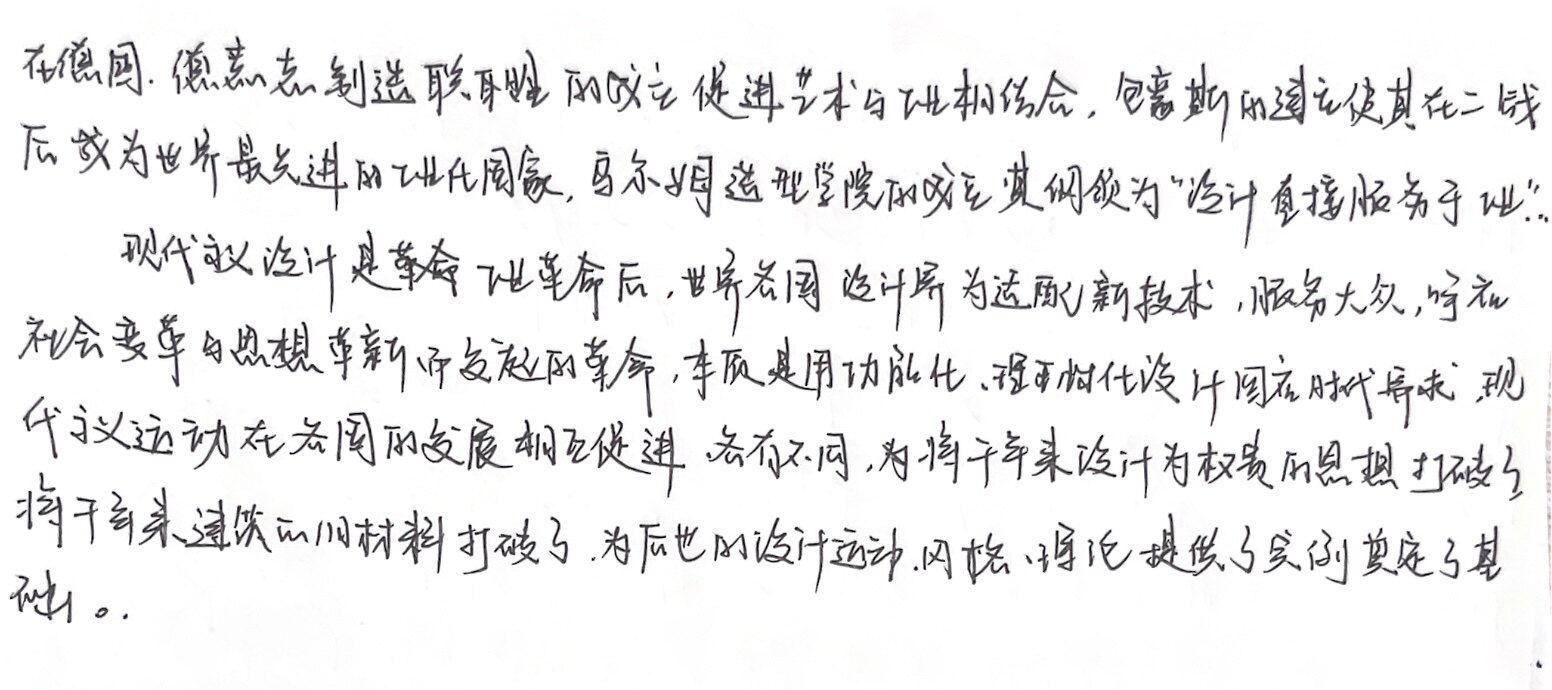 在德国.德意志制造联盟的成立促进艺术与工业相结合,包豪斯的建立使其在二战
后成为世界最先进的工业化国家,乌尔姆造型学院的成立其纲领为“设计直接服务于工业”..
现代主义设计是革命工业革命后,世界各国设计界为适配新技术,服务大众,呼应
社会变革与思想革新而发起的革命,本质是用功能化、理性化设计回应时代需求,现
代主义运动在各国的发展相互促进、各有不同,为将千年来设计为权贵的思想打破了
将千年来建筑的旧材料打破了.为后世的设计运动.风格、理论提供了实例奠定了基
础。.